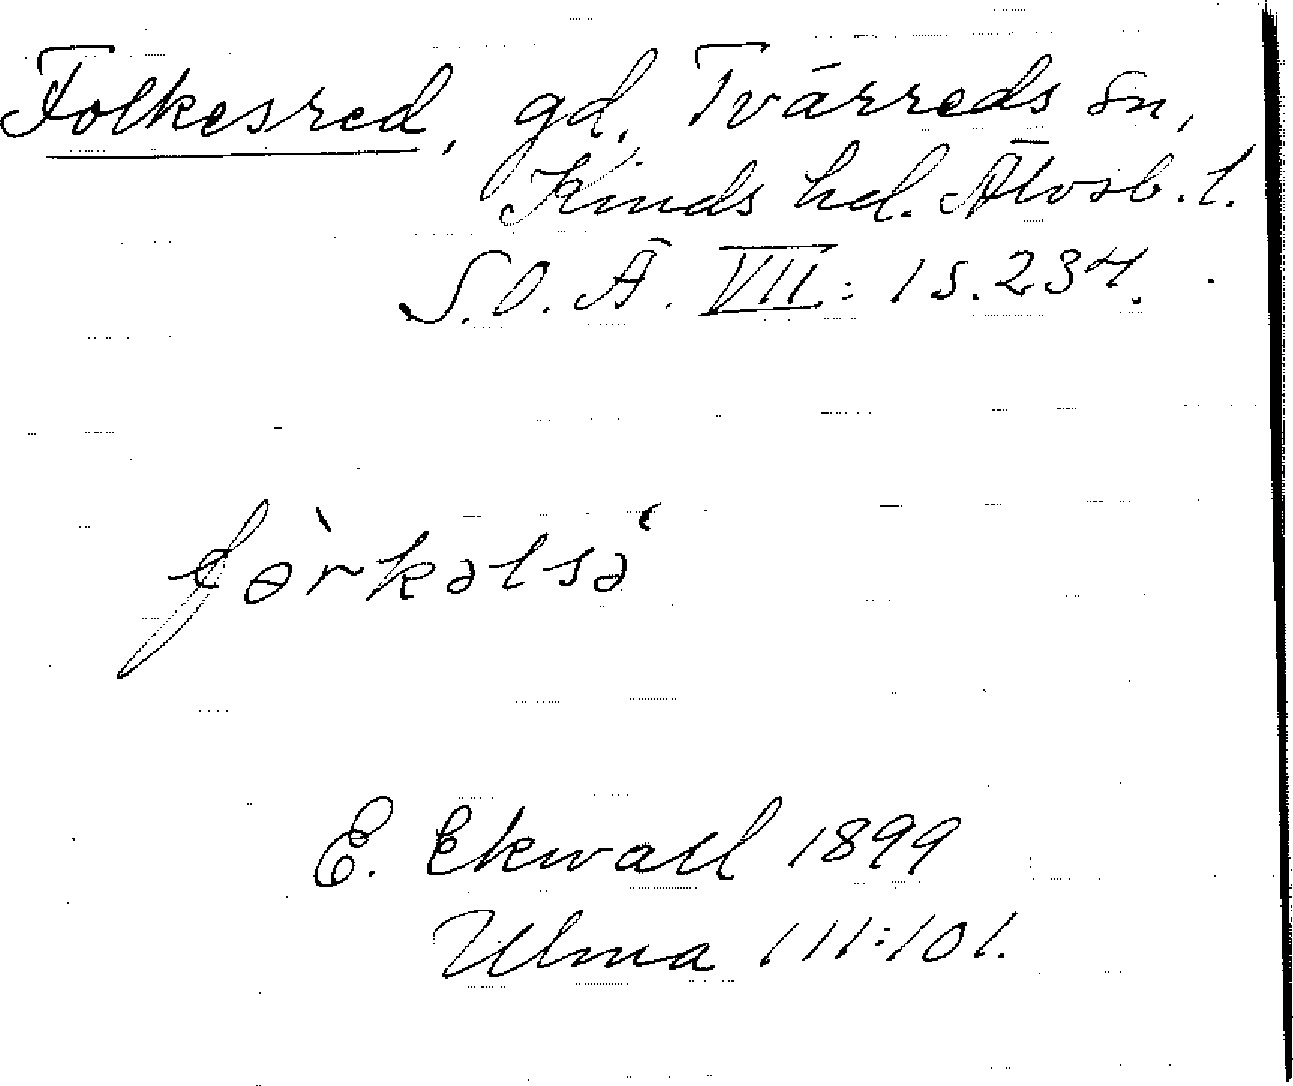 Folkesred, gd, Tvärreds sn,
Kinds hd. Älvsb. l.
S.O.Ä. VII: 1 s. 234.
fɵ̀rkəlsə́
E. Ekwall 1899
Ulma 111:101.